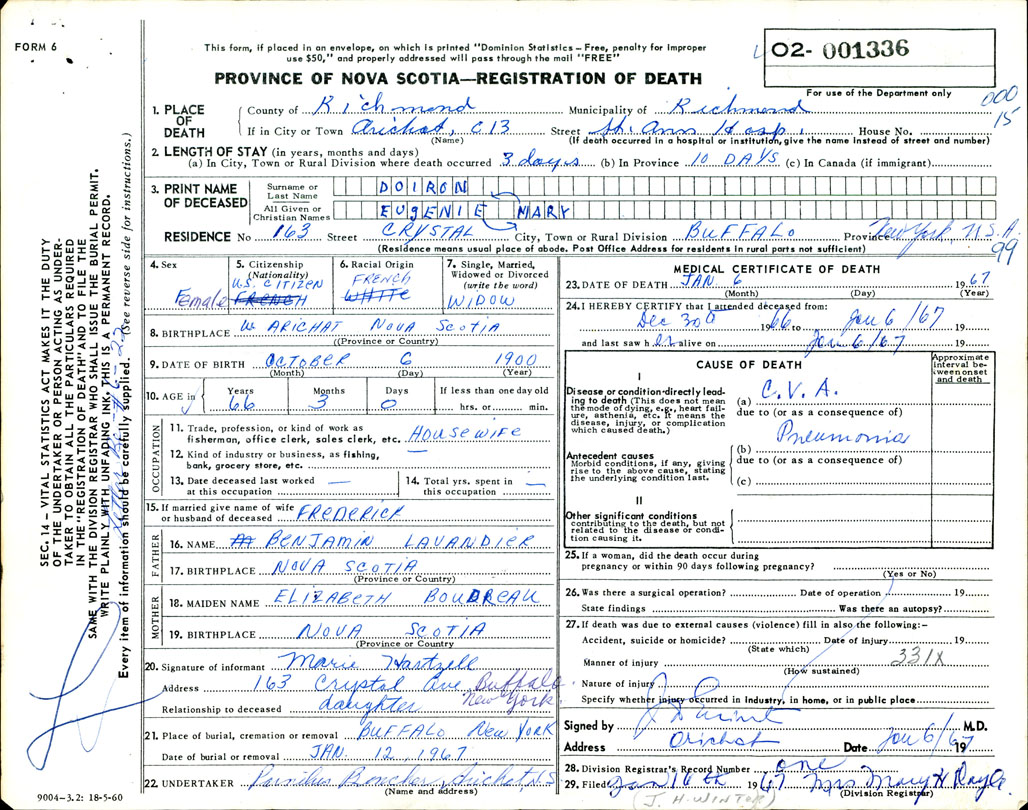 FORM 6
This form, if placed in an envelope, on which is printed "Dominion Statistics – Free, penalty for improper
use $50," and properly addressed will pass through the mail "FREE"
PROVINCE OF NOVA SCOTIA—REGISTRATION OF DEATH
02- 001336
For use of the Department only
000
15
1. PLACE OF DEATH
County of Richmond Municipality of Richmond
If in City or Town Arichat, C13 Street St. Ann Hosp. House No.
(Name) (If death occurred in a hospital or institution, give the name instead of street and number)
2. LENGTH OF STAY (in years, months and days)
(a) In City, Town or Rural Division where death occurred 3 days (b) In Province 10 DAYS (c) In Canada (if immigrant)
3. PRINT NAME OF DECEASED
Surname or Last Name DOIRON
All Given or Christian Names EUGENIE MARY
RESIDENCE No 163 Street CRYSTAL City, Town or Rural Division BUFFALO Province New York U.S.A.
99
(Residence means usual place of abode. Post Office Address for residents in rural parts not sufficient)
4. Sex
Female
5. Citizenship (Nationality)
U.S. CITIZEN
FRENCH
6. Racial Origin
FRENCH
WHITE
7. Single, Married, Widowed or Divorced (write the word)
WIDOW
8. BIRTHPLACE W ARICHAT NOVA SCOTIA
(Province or Country)
9. DATE OF BIRTH OCTOBER 6 1900
(Month) (Day) (Year)
10. AGE in
Years Months Days If less than one day old
66 3 0 hrs. or min.
OCCUPATION
11. Trade, profession, or kind of work as
fisherman, office clerk, sales clerk, etc. HOUSEWIFE
12. Kind of industry or business, as fishing,
bank, grocery store, etc. —
13. Date deceased last worked
at this occupation —
14. Total yrs. spent in
this occupation —
15. If married give name of wife
or husband of deceased FREDERICK
FATHER
16. NAME BENJAMIN LAVANDIER
17. BIRTHPLACE NOVA SCOTIA
(Province or Country)
MOTHER
18. MAIDEN NAME ELIZABETH BOUDREAU
19. BIRTHPLACE NOVA SCOTIA
(Province or Country)
20. Signature of informant Marie Hartzell
Address 163 Crystal Ave Buffalo New York
Relationship to deceased daughter
21. Place of burial, cremation or removal BUFFALO NEW YORK
Date of burial or removal JAN. 12, 1967
22. UNDERTAKER Boucher, Arichat, N.S
(Name and address)
9004–3.2: 18-5-60
MEDICAL CERTIFICATE OF DEATH
23. DATE OF DEATH JAN 6 1967
(Month) (Day) (Year)
24. I HEREBY CERTIFY that I attended deceased from:
Dec 30 1966 to Jan 6/67 19
and last saw h er alive on Jan 6/67 19
CAUSE OF DEATH
Approximate interval between onset and death
I
Disease or condition directly leading to death (This does not mean the mode of dying, e.g., heart failure, asthenia, etc. It means the disease, injury, or complication which caused death.)
(a) C.V.A.
due to (or as a consequence of)
Pneumonia
Antecedent causes
Morbid conditions, if any, giving rise to the above cause, stating the underlying condition last.
(b)
due to (or as a consequence of)
(c)
II
Other significant conditions
contributing to the death, but not related to the disease or condition causing it.
25. If a woman, did the death occur during
pregnancy or within 90 days following pregnancy?
(Yes or No)
26. Was there a surgical operation? Date of operation 19
State findings Was there an autopsy?
27. If death was due to external causes (violence) fill in also the following:–
Accident, suicide or homicide? Date of injury 19
(State which)
Manner of injury 331X
(How sustained)
Nature of injury
Specify whether injury occurred in industry, in home, or in public place
Signed by M.D.
Address Arichat Date Jan 6/67 19
28. Division Registrar's Record Number one
29. Filed Jan 16th 1967 Mrs Mary H
(Division Registrar)
(J. H. WINTOK)
SEC. 14 – VITAL STATISTICS ACT MAKES IT THE DUTY
OF THE UNDERTAKER OR PERSON ACTING AS UNDER-
TAKER TO OBTAIN ALL THE PARTICULARS REQUIRED
IN THE "REGISTRATION OF DEATH" AND TO FILE THE
SAME WITH THE DIVISION REGISTRAR WHO SHALL ISSUE THE BURIAL PERMIT.
WRITE PLAINLY WITH UNFADING INK, THIS IS A PERMANENT RECORD.
Every item of information should be carefully supplied. (See reverse side for instructions.)